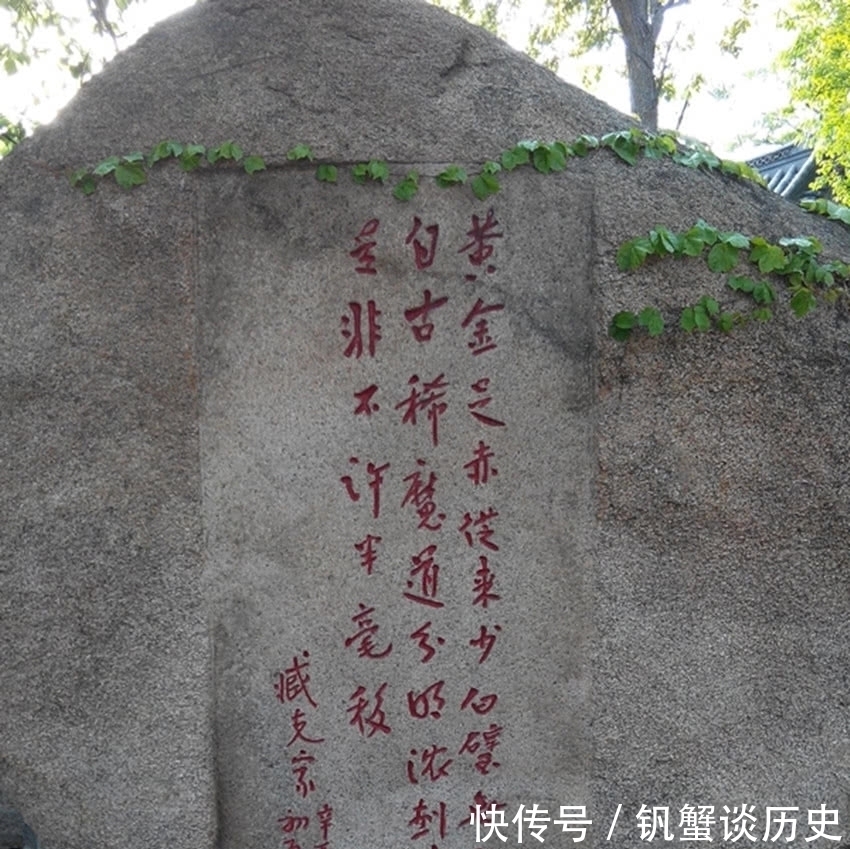 黄金足赤從来少白璧
自古稀魔道分明浓
是非不许半毫移
臧克家
辛
初
快传号 / 钒蟹谈历史